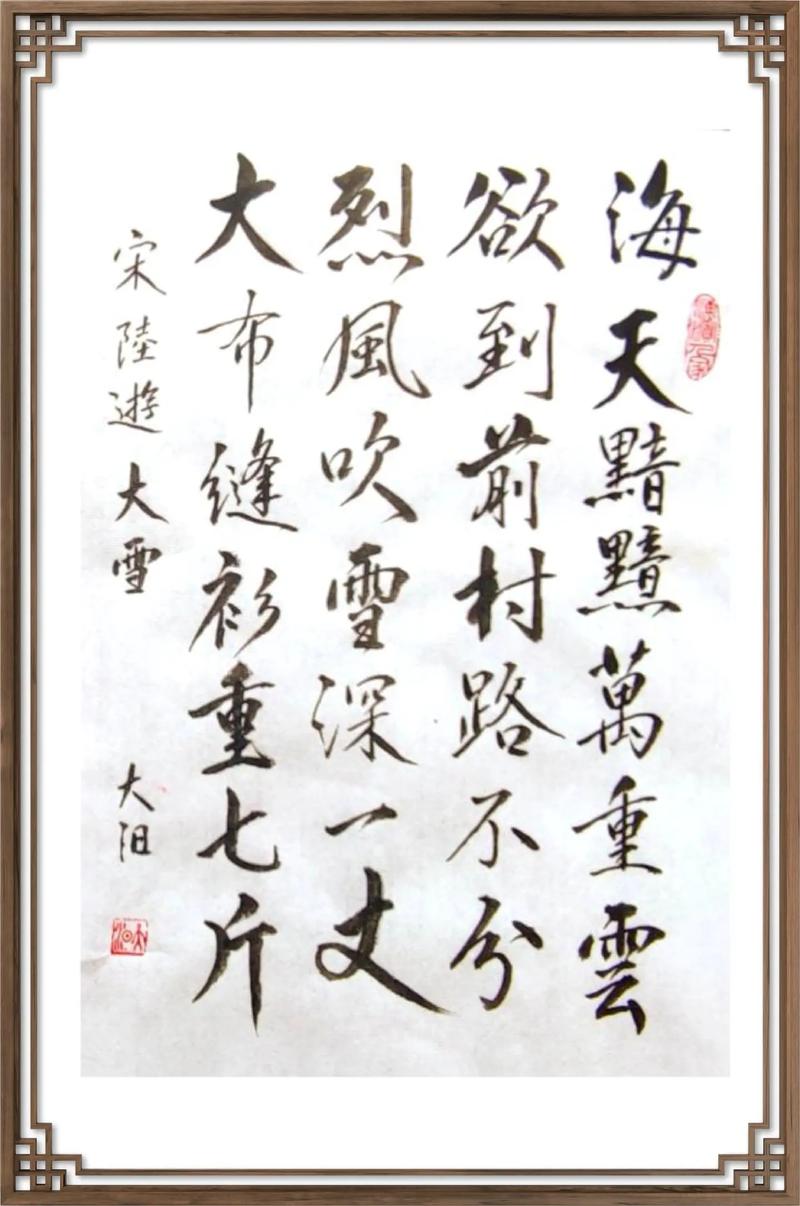 海天黯黯萬重雲
欲到前村路不分
烈風吹雪深一丈
大布縫衫重七斤
宋 陸遊 大雪
大